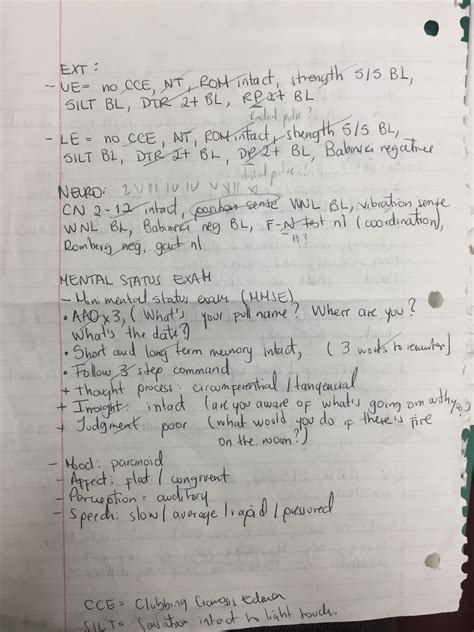 EXT:
- UE= no CCE, NT, ROM intact, strength 5/5 BL,
SILT BL, DTR 2+ BL, RP 2+ BL
Radial pulse?
- LE= no CCE, NT, ROM intact, strength 5/5 BL,
SILT BL, DTR 2+ BL, DP 2+ BL, Babinski negative
distal pulse?
NEURO:
CN 2-12 intact, position sense WNL BL, vibration sense
WNL BL, Babinski neg BL, F-N test nl (coordination),
H?
Romberg neg, gait nl
MENTAL STATUS EXAM
- Mini mental status exam (MMSE)
• AAO x3, (What's your full name? Where are you?
What's the date?)
• Short and long term memory intact, (3 words to remember)
• Follow 3 step command
+ Thought process: circumferential / tangencial
+ Insight: intact (are you aware of what's going on
+ Judgment poor (what would you do if there's fire
on the room?)
- Mood: paranoid
- Affect: flat / congruent
- Perception = auditory
- Speech: slow / average / rapid / pressured
CCE = Clubbing Cianosis Edema
SILT= Sensation intact to light touch.